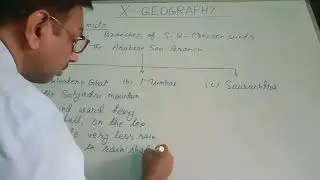 X-GEOGRAPHY
Branches of S.W-Monsoon winds
The Arabian Sea Branch
Western Ghat (b) Mumbai (c) Saurashtra
the Sahyadri mountain
wind ward
on the top
very less rain
in rain